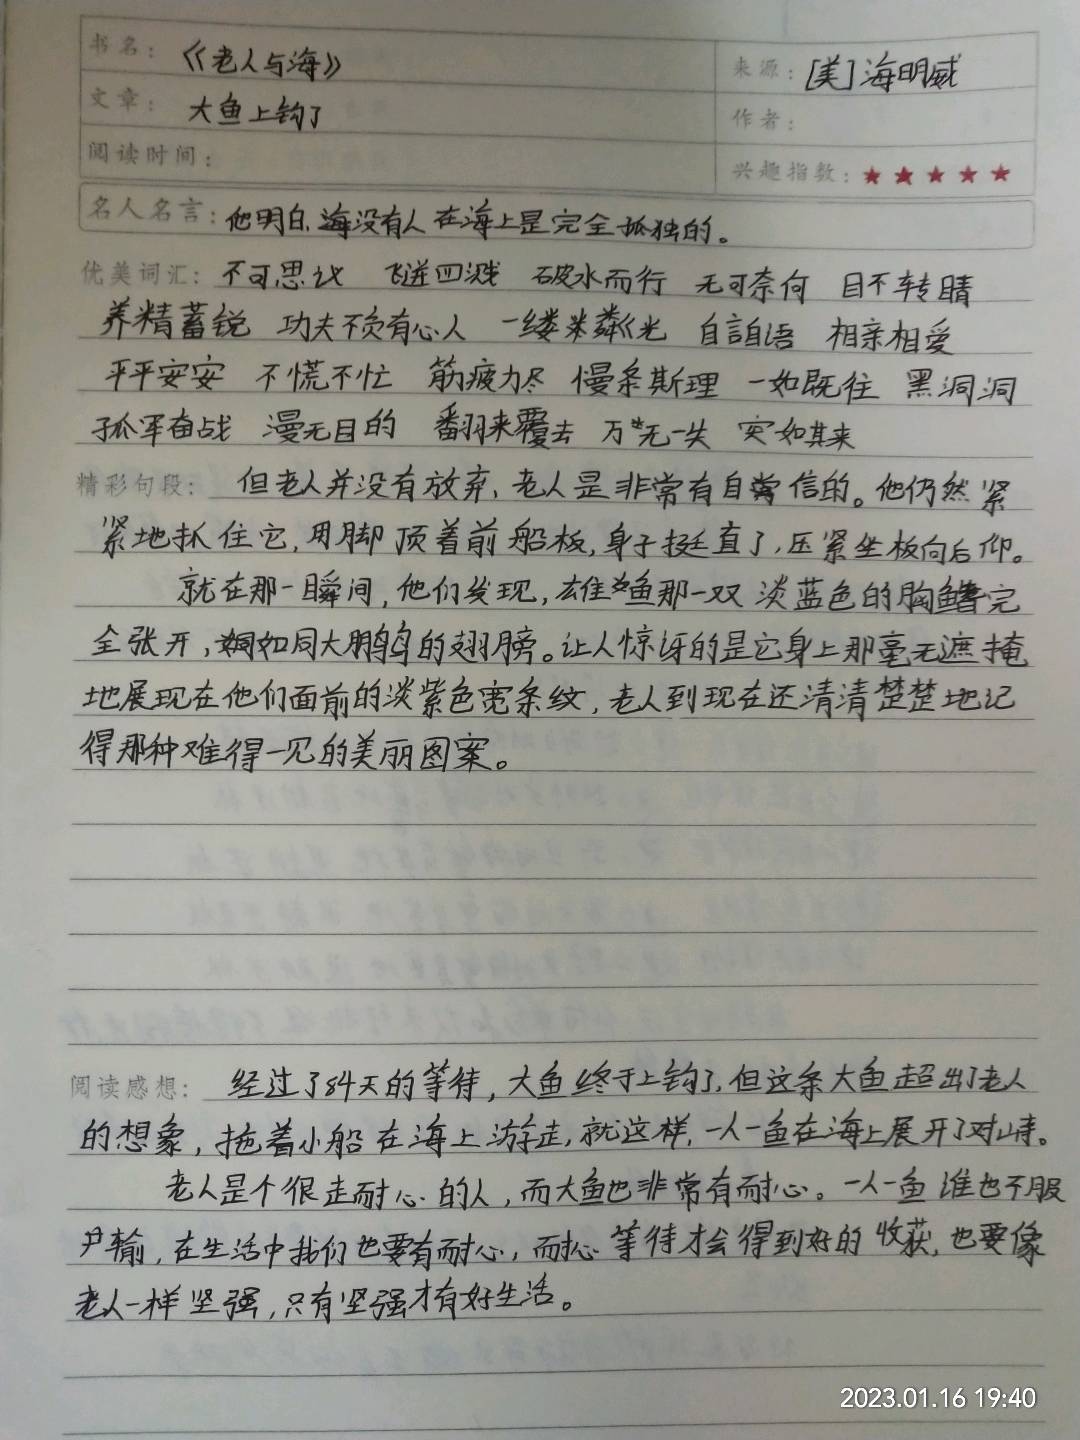 书名：《老人与海》 来源：[美]海明威
文章：大鱼上钩了 作者：
阅读时间： 兴趣指数：★★★★★
名人名言：他明白，海没有人在海上是完全孤独的。
优美词汇：不可思议 飞迸四溅 破水而行 无可奈何 目不转睛
养精蓄锐 功夫不负有心人 一缕粼粼光 自言自语 相亲相爱
平平安安 不慌不忙 筋疲力尽 慢条斯理 一如既往 黑洞洞
孤军奋战 漫无目的 翻来覆去 万无一失 突如其来
精彩句段：但老人并没有放弃，老人是非常有自信的。他仍然紧
紧地抓住它，用脚顶着前船板，身子挺直了，压紧坐板向后仰。
就在那一瞬间，他们发现，雄鱼那一双淡蓝色的胸鳍完
全张开，如同大鹏鸟的翅膀。让人惊讶的是它身上那毫无遮掩
地展现在他们面前的淡紫色宽条纹，老人到现在还清清楚楚地记
得那种难得一见的美丽图案。
阅读感想：经过了84天的等待，大鱼终于上钩了，但这条大鱼超出了老人
的想象，拖着小船在海上游走，就这样，一人一鱼在海上展开了对峙。
老人是个很走耐心的人，而大鱼也非常有耐心。一人一鱼谁也不服
输，在生活中我们也要有耐心，耐心等待才会得到好的收获，也要像
老人一样坚强，只有坚强才有好生活。
2023.01.16 19:40